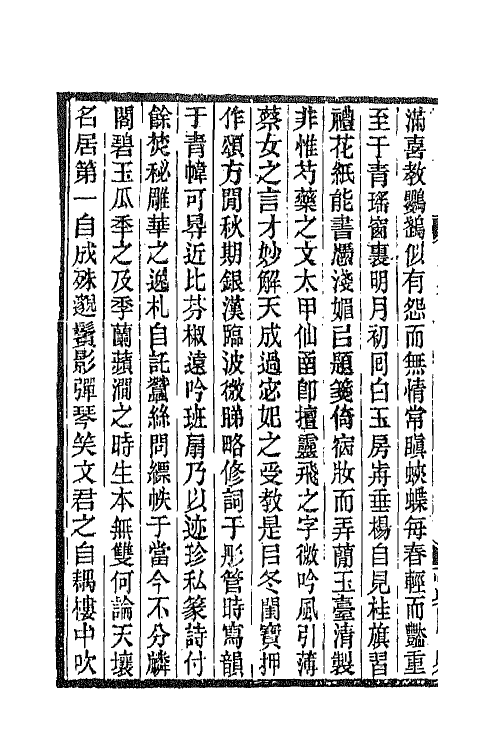 滿喜教鸚鵡似有怨而無情常瞋蛺蝶每春輕而豔重
至于青瑤窗裏明月初回白玉房歬垂楊自見桂旗習
禮花紙能書靨淺媚已題箋倚宿妝而弄蕳玉臺清製
非惟芍藥之文太甲仙函卽擅靈飛之字微吟風引薄
蔡女之言才妙解天成過宓妃之受教是㠯冬閨寶押
作頌方閒秋期銀漢臨波微睇略修詞于彤管時寫韻
于青幃可㝷近比芬椒遠吟班扇乃以迹珍私篆詩付
餘焚秘雕華之逸札自託蠶絲問縹帙于當今不分麟
閣碧玉瓜季之及季蘭蘋澗之時生本無雙何論天壤
名居第一自成殊邈鬢影彈琴笑文君之自耦樓中吹